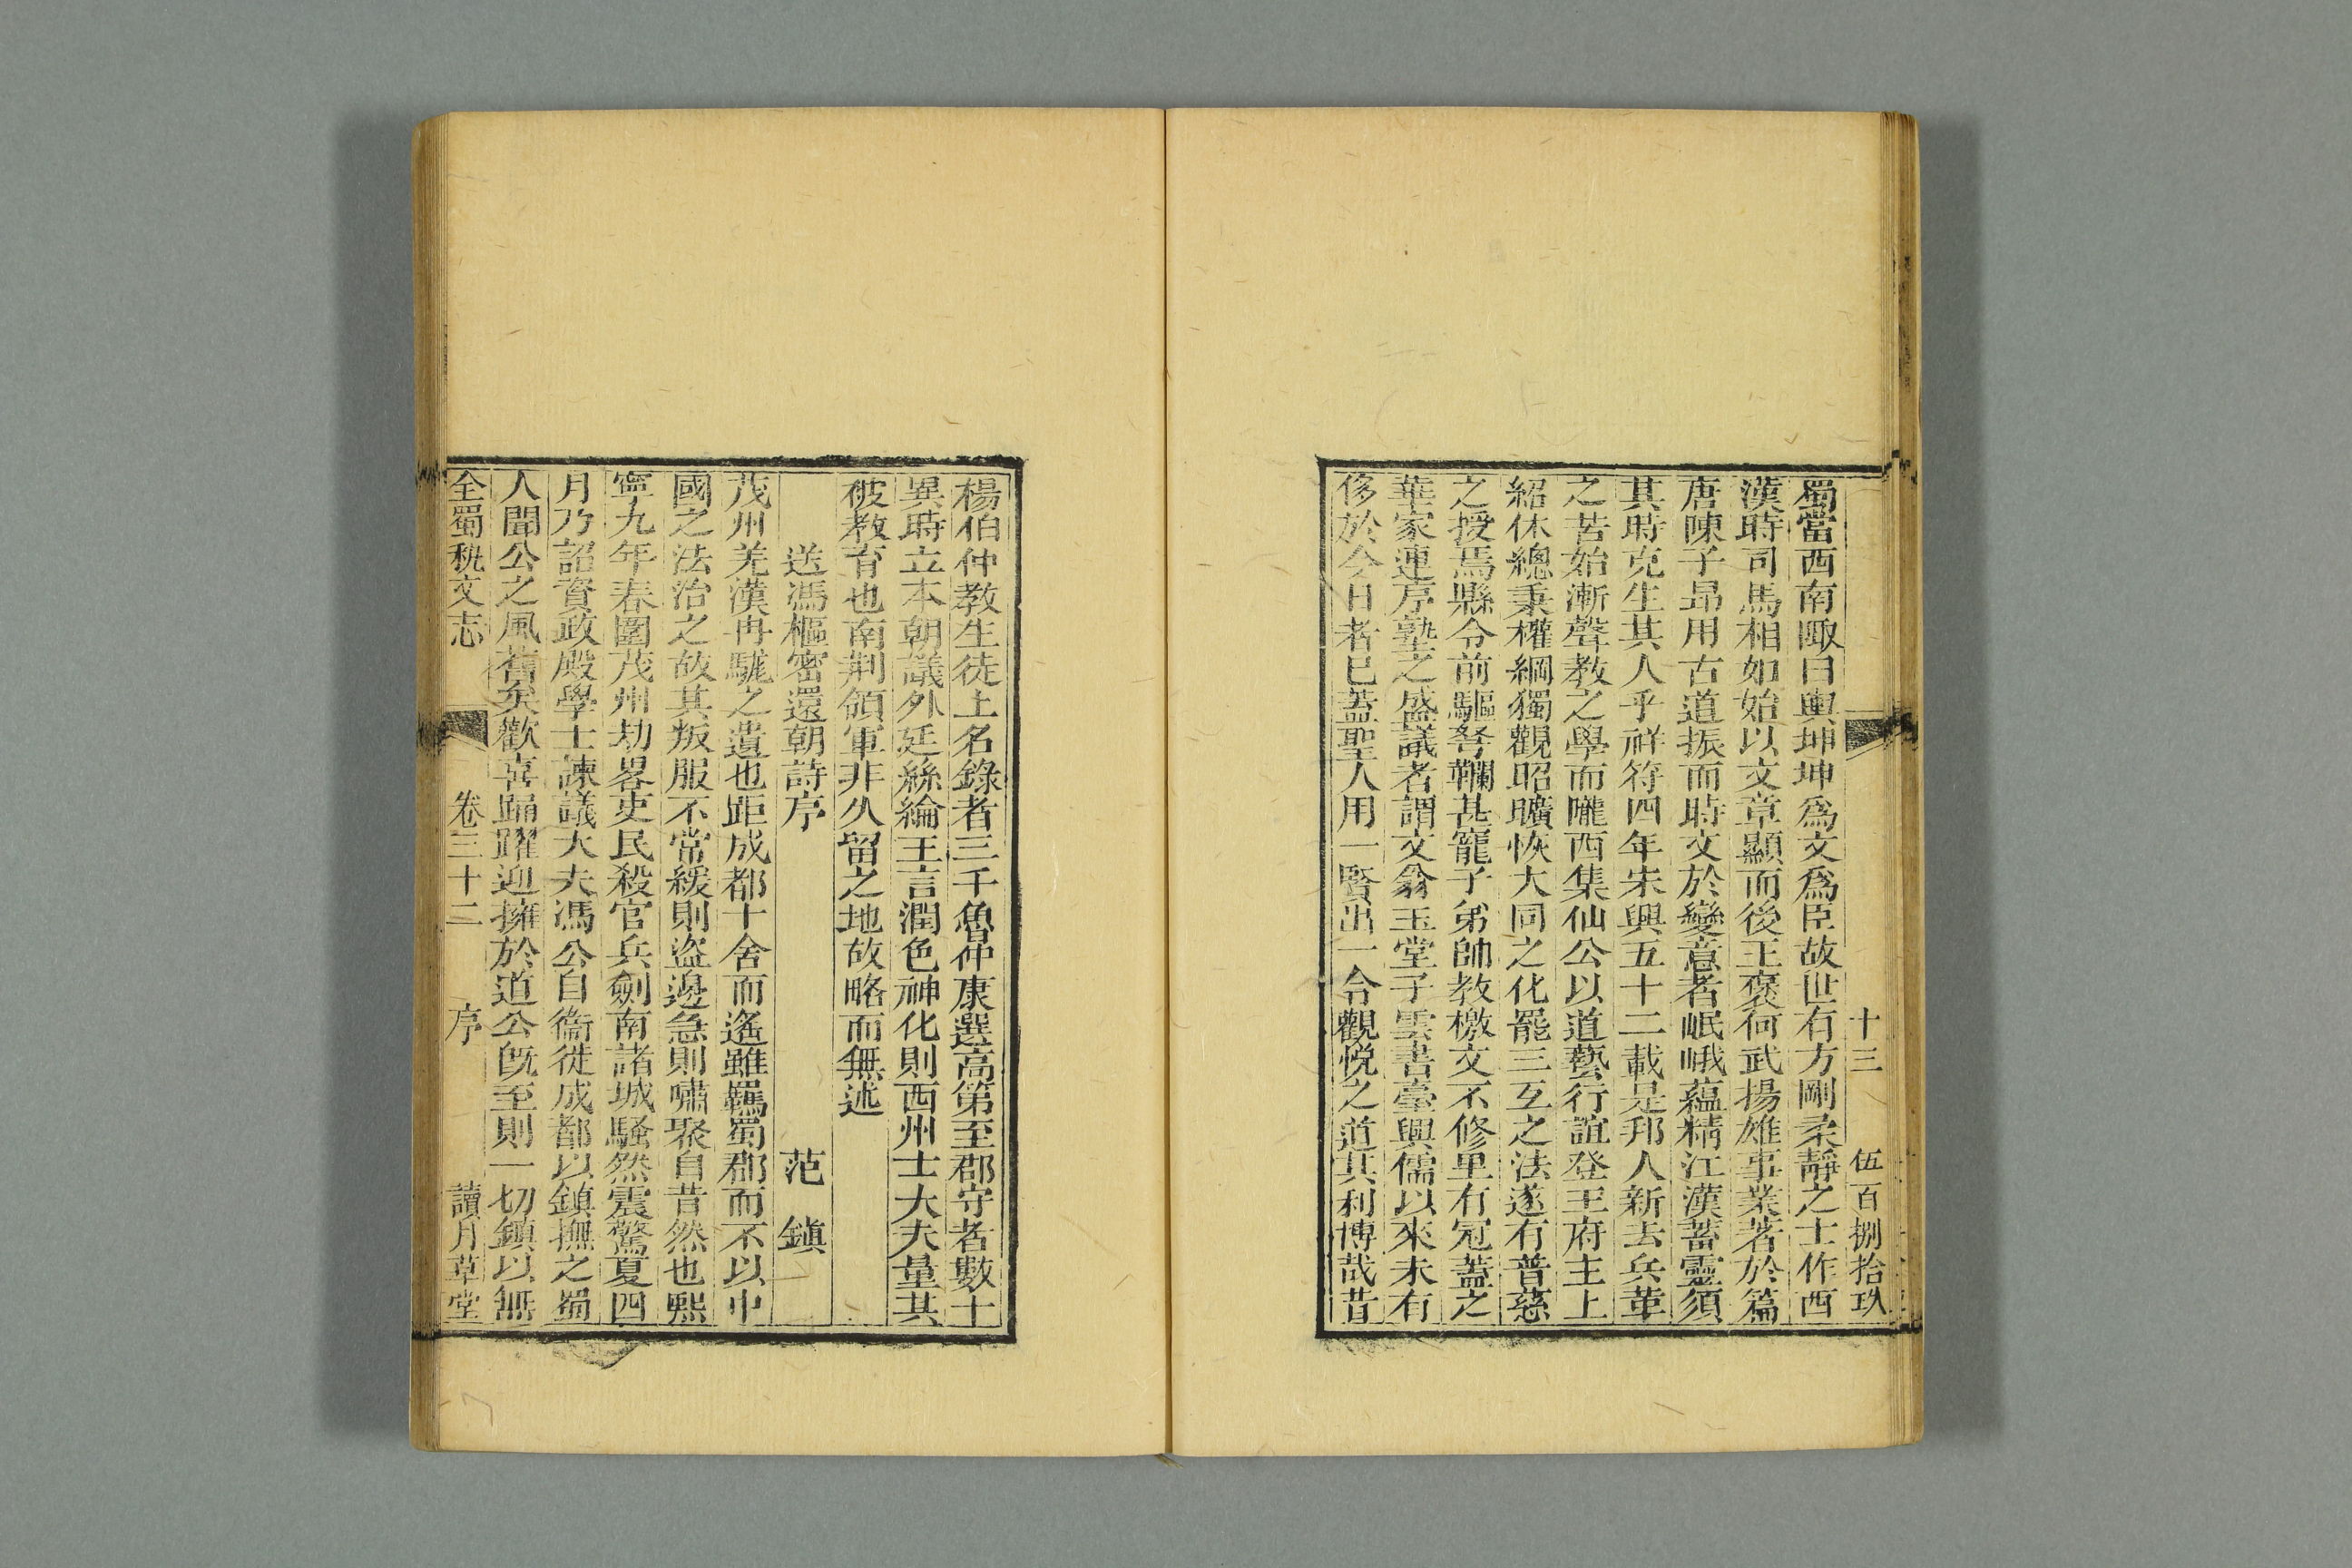 十三 伍百捌拾玖
蜀當西南陬曰輿坤坤爲文爲臣故世有方剛柔靜之士作西
漢時司馬相如始以文章顯而後王襃何武揚雄事業著於篇
唐陳子昻用古道振而時文於變意者岷峨蘊精江漢蓄靈須
其時克生其人乎祥符四年宋興五十二載是邦人新去兵革
之苦始漸聲教之學而隴西集仙公以道藝行誼登王府主上
紹休總秉權綱獨觀昭曠恢大同之化罷三互之法遂有普慈
之授焉縣令前驅弩韊甚寵子弟帥教檄文不修里有冠蓋之
華家連序塾之盛議者謂文翁玉堂子雲書臺興儒以來未有
侈於今日者已蓋聖人用一賢出一令觀悅之道其利博哉昔
楊伯仲教生徒上名錄者三千魯仲康選高第至郡守者數十
異時立本朝議外廷絲綸王言潤色神化則西州士大夫量其
彼教育也南荆領軍非久留之地故略而無述
送馮樞密還朝詩序 范鎭
茂州羌漢冉駹之遺也距成都十舍而遙雖羈蜀郡而不以中
國之法治之故其叛服不常緩則盜邊急則嘯聚自昔然也熙
寧九年春圍茂州劫畧吏民殺官兵劍南諸城騷然震驚夏四
月乃詔資政殿學士諫議大夫馮公自衞徙成都以鎮撫之蜀
人聞公之風舊矣歡喜踊躍迎擁於道公旣至則一切鎮以無
全蜀秇文志 卷三十二 序 讀月草堂